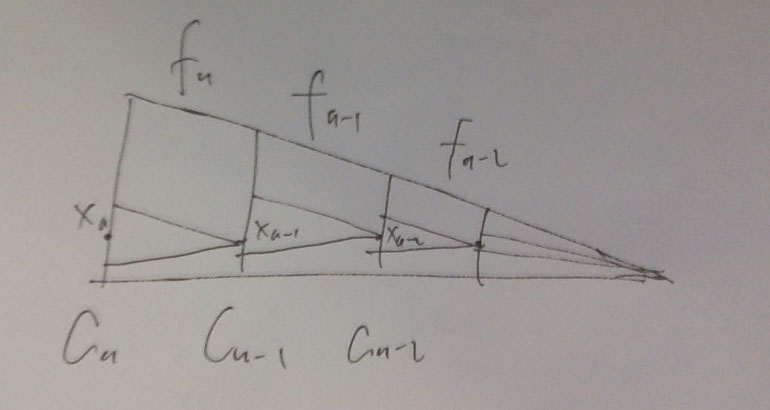 fn
fn-1
fn-2
xn
xn-1
xn-2
Cn
Cn-1
Cn-2